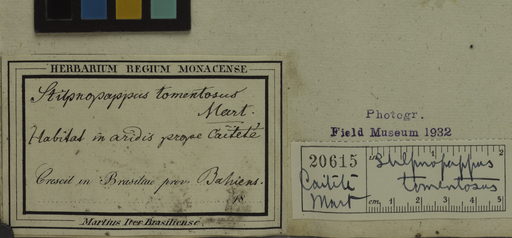 HERBARIUM REGIUM MONACENSE
Stilpnopappus tomentosus
Mart.
Habitat in aridis prope Caiteté
Crescit in Brasiliae prov. Bahiens.
18
Martius Iter Brasiliense.
Photogr.
Field Museum 1932
20615
Stilpnopappus
tomentosus
Caiteté
Mart
in 1 2
cm 1 2 3 4 5